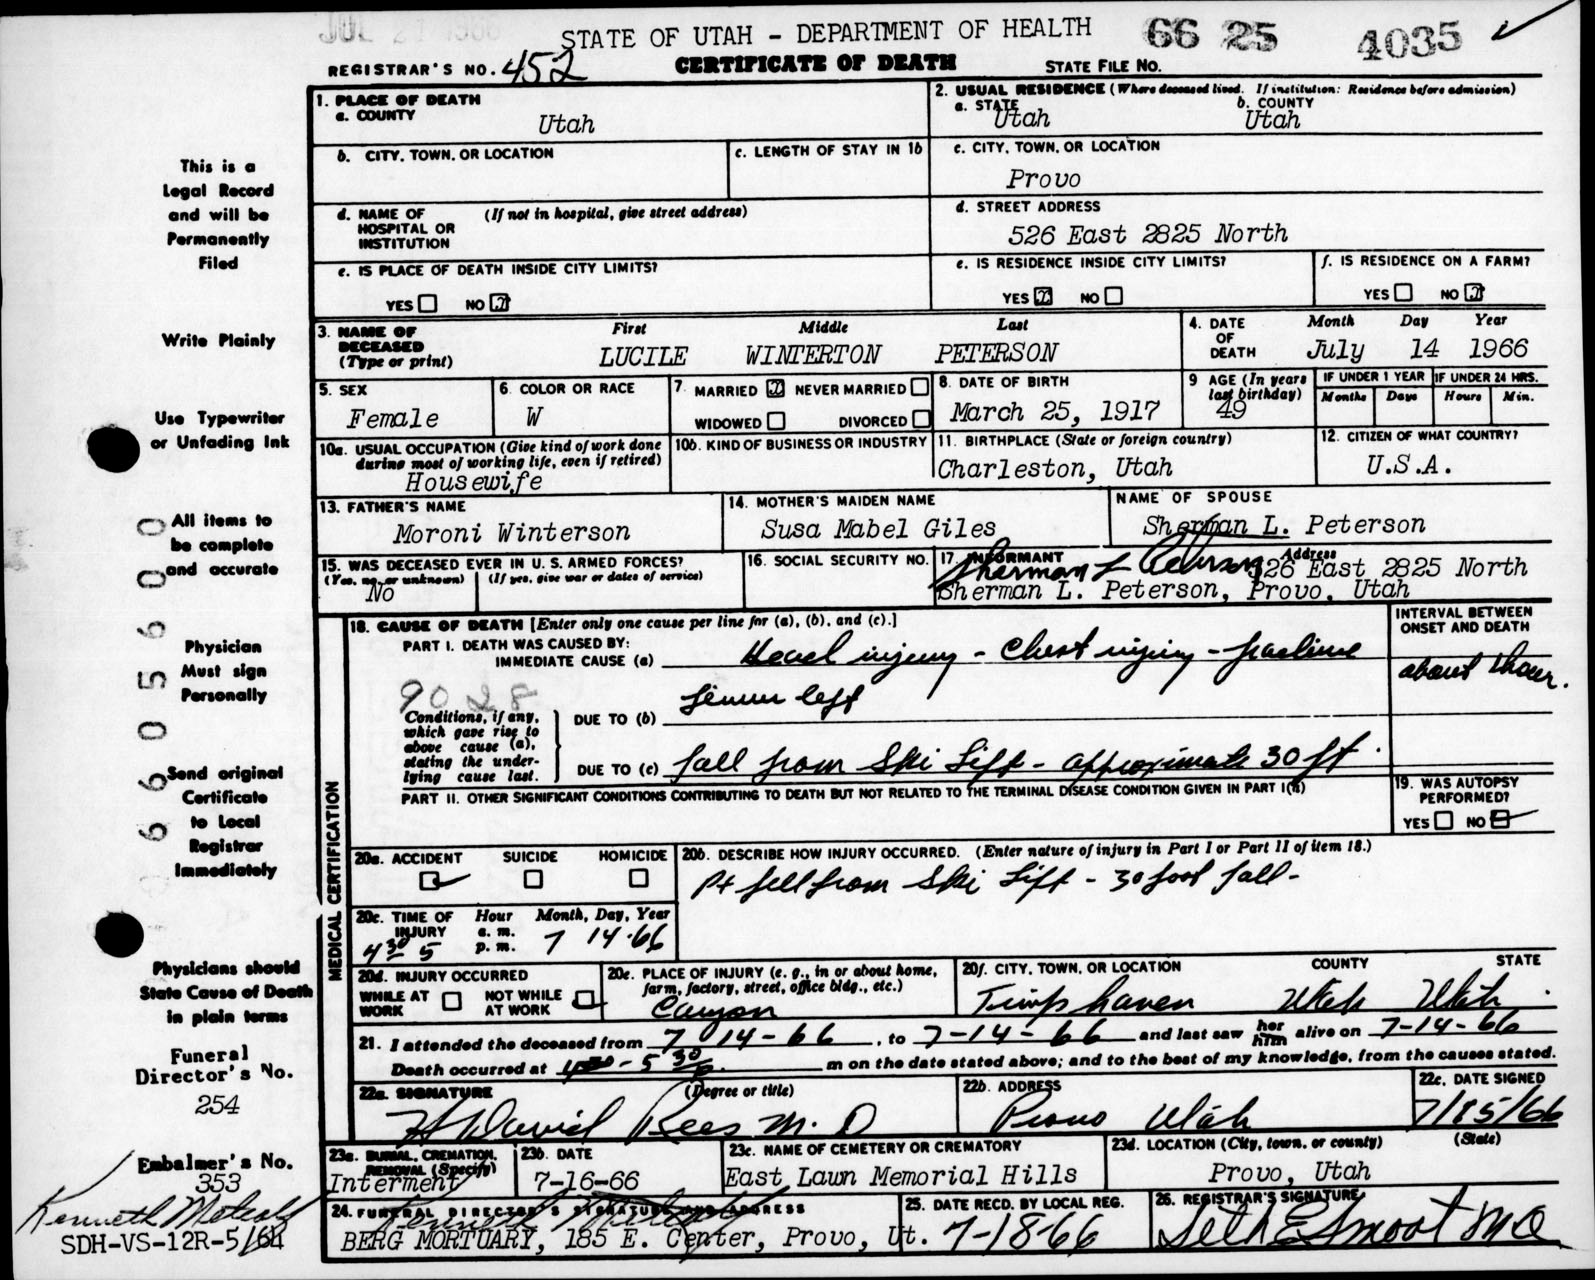 JUL 21 1966
STATE OF UTAH - DEPARTMENT OF HEALTH 66 25 4035
REGISTRAR'S NO. 452 CERTIFICATE OF DEATH STATE FILE NO.
1. PLACE OF DEATH
a. COUNTY
Utah
2. USUAL RESIDENCE (Where deceased lived. If institution: Residence before admission)
a. STATE b. COUNTY
Utah Utah
b. CITY, TOWN, OR LOCATION c. LENGTH OF STAY IN 1b
c. CITY, TOWN, OR LOCATION
Provo
d. NAME OF (If not in hospital, give street address)
HOSPITAL OR
INSTITUTION
d. STREET ADDRESS
526 East 2825 North
e. IS PLACE OF DEATH INSIDE CITY LIMITS?
YES NO X
e. IS RESIDENCE INSIDE CITY LIMITS?
YES X NO
f. IS RESIDENCE ON A FARM?
YES NO X
3. NAME OF First Middle Last
DECEASED
(Type or print) LUCILE WINTERTON PETERSON
4. DATE Month Day Year
OF
DEATH July 14 1966
5. SEX
Female
6. COLOR OR RACE
W
7. MARRIED X NEVER MARRIED
WIDOWED DIVORCED
8. DATE OF BIRTH
March 25, 1917
9 AGE (In years
last birthday)
49
IF UNDER 1 YEAR IF UNDER 24 HRS.
Months Days Hours Min.
10a. USUAL OCCUPATION (Give kind of work done
during most of working life, even if retired)
Housewife
10b. KIND OF BUSINESS OR INDUSTRY
11. BIRTHPLACE (State or foreign country)
Charleston, Utah
12. CITIZEN OF WHAT COUNTRY?
U.S.A.
13. FATHER'S NAME
Moroni Winterson
14. MOTHER'S MAIDEN NAME
Susa Mabel Giles
NAME OF SPOUSE
Sherman L. Peterson
15. WAS DECEASED EVER IN U. S. ARMED FORCES?
(Yes, no, or unknown) (If yes, give war or dates of service)
No
16. SOCIAL SECURITY NO.
17. INFORMANT Address
Sherman L Peterson 526 East 2825 North
Sherman L. Peterson, Provo, Utah
MEDICAL CERTIFICATION
18. CAUSE OF DEATH [Enter only one cause per line for (a), (b), and (c).]
INTERVAL BETWEEN
ONSET AND DEATH
PART I. DEATH WAS CAUSED BY:
IMMEDIATE CAUSE (a) Head injury - Chest injury - fracture
about 1 hour.
902.8 femur left
Conditions, if any,
which gave rise to
above cause (a),
stating the under-
lying cause last.
DUE TO (b)
DUE TO (c) fall from Ski Lift - approximate 30 ft.
PART II. OTHER SIGNIFICANT CONDITIONS CONTRIBUTING TO DEATH BUT NOT RELATED TO THE TERMINAL DISEASE CONDITION GIVEN IN PART I(a)
19. WAS AUTOPSY
PERFORMED?
YES NO
20a. ACCIDENT SUICIDE HOMICIDE
20b. DESCRIBE HOW INJURY OCCURRED. (Enter nature of injury in Part I or Part II of item 18.)
Pt fell from Ski Lift - 30 foot fall -
20c. TIME OF Hour Month, Day, Year
INJURY a. m.
4 30 5 p. m. 7 14-66
20d. INJURY OCCURRED
WHILE AT WORK NOT WHILE AT WORK
20e. PLACE OF INJURY (e. g., in or about home,
farm, factory, street, office bldg., etc.)
Canyon
20f. CITY, TOWN, OR LOCATION COUNTY STATE
Timphaven Utah Utah
21. I attended the deceased from 7 14-66, to 7-14-66 and last saw her him alive on 7-14-66
Death occurred at 5 30 p. m on the date stated above; and to the best of my knowledge, from the causes stated.
22a. SIGNATURE (Degree or title)
H David Rees M. D
22b. ADDRESS
Provo Utah
22c. DATE SIGNED
23a. BURIAL, CREMATION,
REMOVAL (Specify)
Interment
23b. DATE
7-16-66
23c. NAME OF CEMETERY OR CREMATORY
East Lawn Memorial Hills
23d. LOCATION (City, town, or county) (State)
Provo, Utah
24. FUNERAL DIRECTOR'S SIGNATURE AND ADDRESS
Kenneth Metcalf
BERG MORTUARY, 185 E. Center, Provo, Ut.
25. DATE RECD. BY LOCAL REG.
7-18-66
26. REGISTRAR'S SIGNATURE
Seth E Smoot MD
This is a
Legal Record
and will be
Permanently
Filed
Write Plainly
Use Typewriter
or Unfading Ink
All items to
be complete
and accurate
Physician
Must sign
Personally
Send original
Certificate
to Local
Registrar
Immediately
Physicians should
State Cause of Death
in plain terms
Funeral
Director's No.
254
Embalmer's No.
353
Kenneth Metcalf
SDH-VS-12R-5/64
6 6 0 5 6 0 0